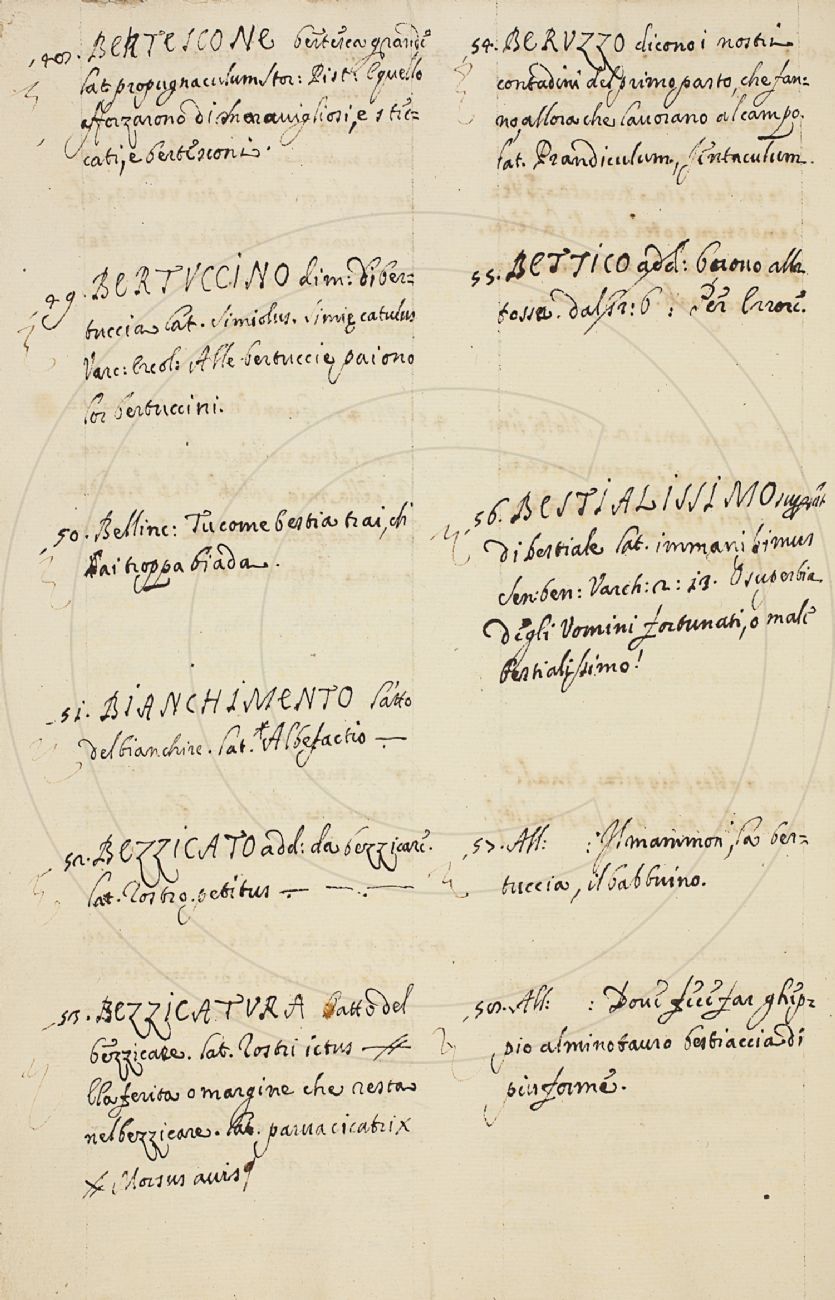 48. BERTESCONE bertesca grande
lat. propugnaculum stor: Pist: E quello
afforzarono di meravigliosi, e stec-
cati, e bertesconi.
49. BERTUCCINO dim: di ber-
tuccia lat. simiolus. simię catulus
Varc: Ercol: Alle bertuccie paiono
lor bertuccini.
50. Bellinc: Tu come bestia trai, chi
tai troppa biada.
51. BIANCHIMENTO l'atto
del bianchire. lat. *Albefactio —
52. BEZZICATO add: da bezzicare.
lat. Rostro petitus — — . —
53. BEZZICATURA l'atto del
bezzicare. lat. Rostri ictus
E la ferita o margine che resta
nel bezzicare. lat. parva cicatrix
Morsus avis
54. BERUZZO dicono i nostri
contadini del primo pasto, che fan-
no, allora che lavorano al campo.
lat. Prandiculum, Jentaculum.
55. BETTICO add: buono alla
tosse. dal gr: 6 : Per Errore.
56. BESTIALISSIMO superlat
di bestiale lat. immanissimus
Sen: ben: Varch: 2: 13. O superbia
degli Uomini fortunati, o male
bestialissimo!
57. All: : Il mammon, la ber-
tuccia, il babbuino.
58. All: : Dove fece far ghep-
pio al minotauro bestiaccia di
piu forme.